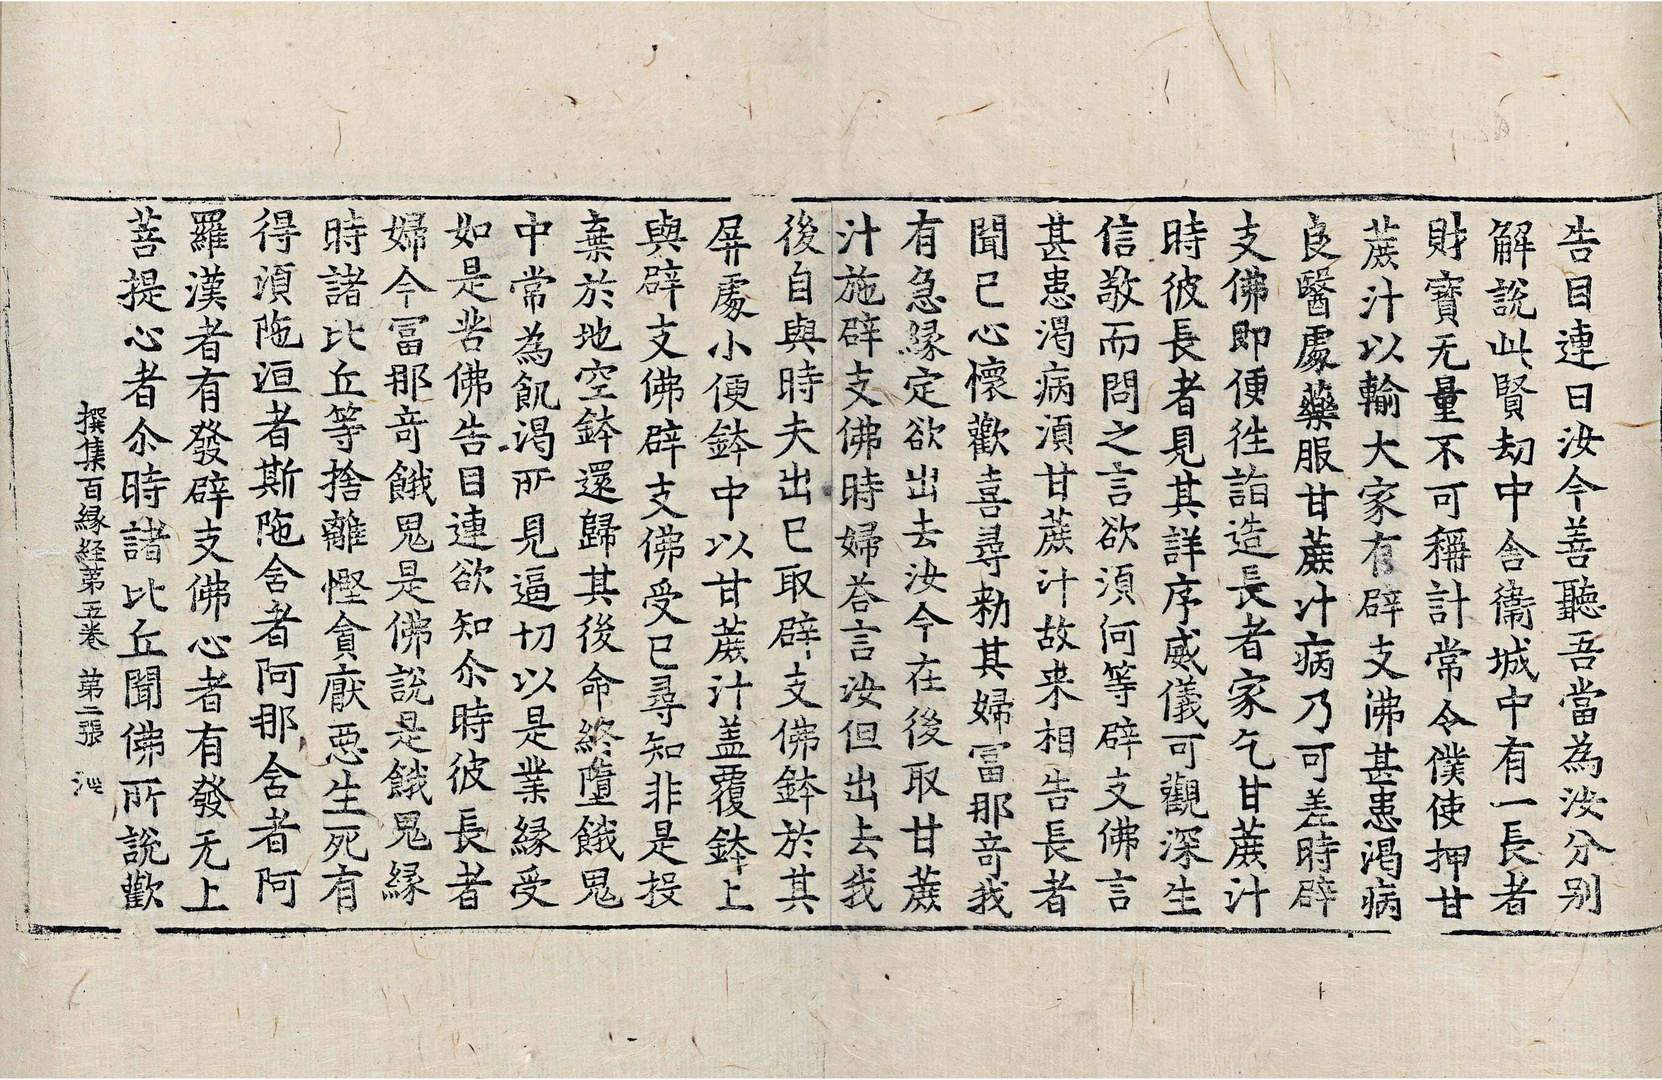 告目連曰汝今善聽吾當為汝分別
解說此賢劫中舍衞城中有一長者
財寶无量不可稱計常令僕使押甘
蔗汁以輸大家有辟支佛甚患渴病
良醫處藥服甘蔗汁病乃可差時辟
支佛即便徃詣造長者家乞甘蔗汁
時彼長者見其詳序威儀可觀深生
信敬而問之言欲湏何等辟支佛言
甚患渴病湏甘蔗汁故来相告長者
聞已心懷歡喜尋勑其婦冨那竒我
有急緣定欲出去汝今在後取甘蔗
汁施辟支佛時婦荅言汝但出去我
後自與時夫出已取辟支佛鉢於其
屏處小便鉢中以甘蔗汁盖覆鉢上
與辟支佛辟支佛受已尋知非是投
棄於地空鉢還歸其後命終墮餓鬼
中常為飢渴所見逼切以是業緣受
如是苦佛告目連欲知尒時彼長者
婦今冨那竒餓鬼是佛說是餓鬼緣
時諸比丘等捨離慳貪厭惡生死有
得湏陁洹者斯陁含者阿那含者阿
羅漢者有發辟支佛心者有發无上
菩提心者尒時諸比丘聞佛所說歡
撰集百緣経第五卷 第二張 沁